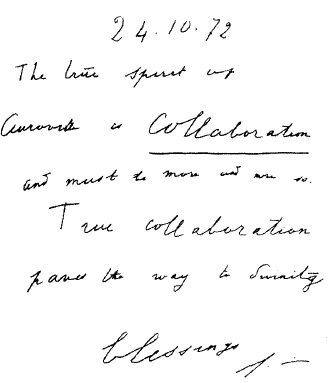 24.10.72
The true spirit of
Auroville is Collaboration
and must be more and more so.
True collaboration
paves the way to Divinity
Blessings